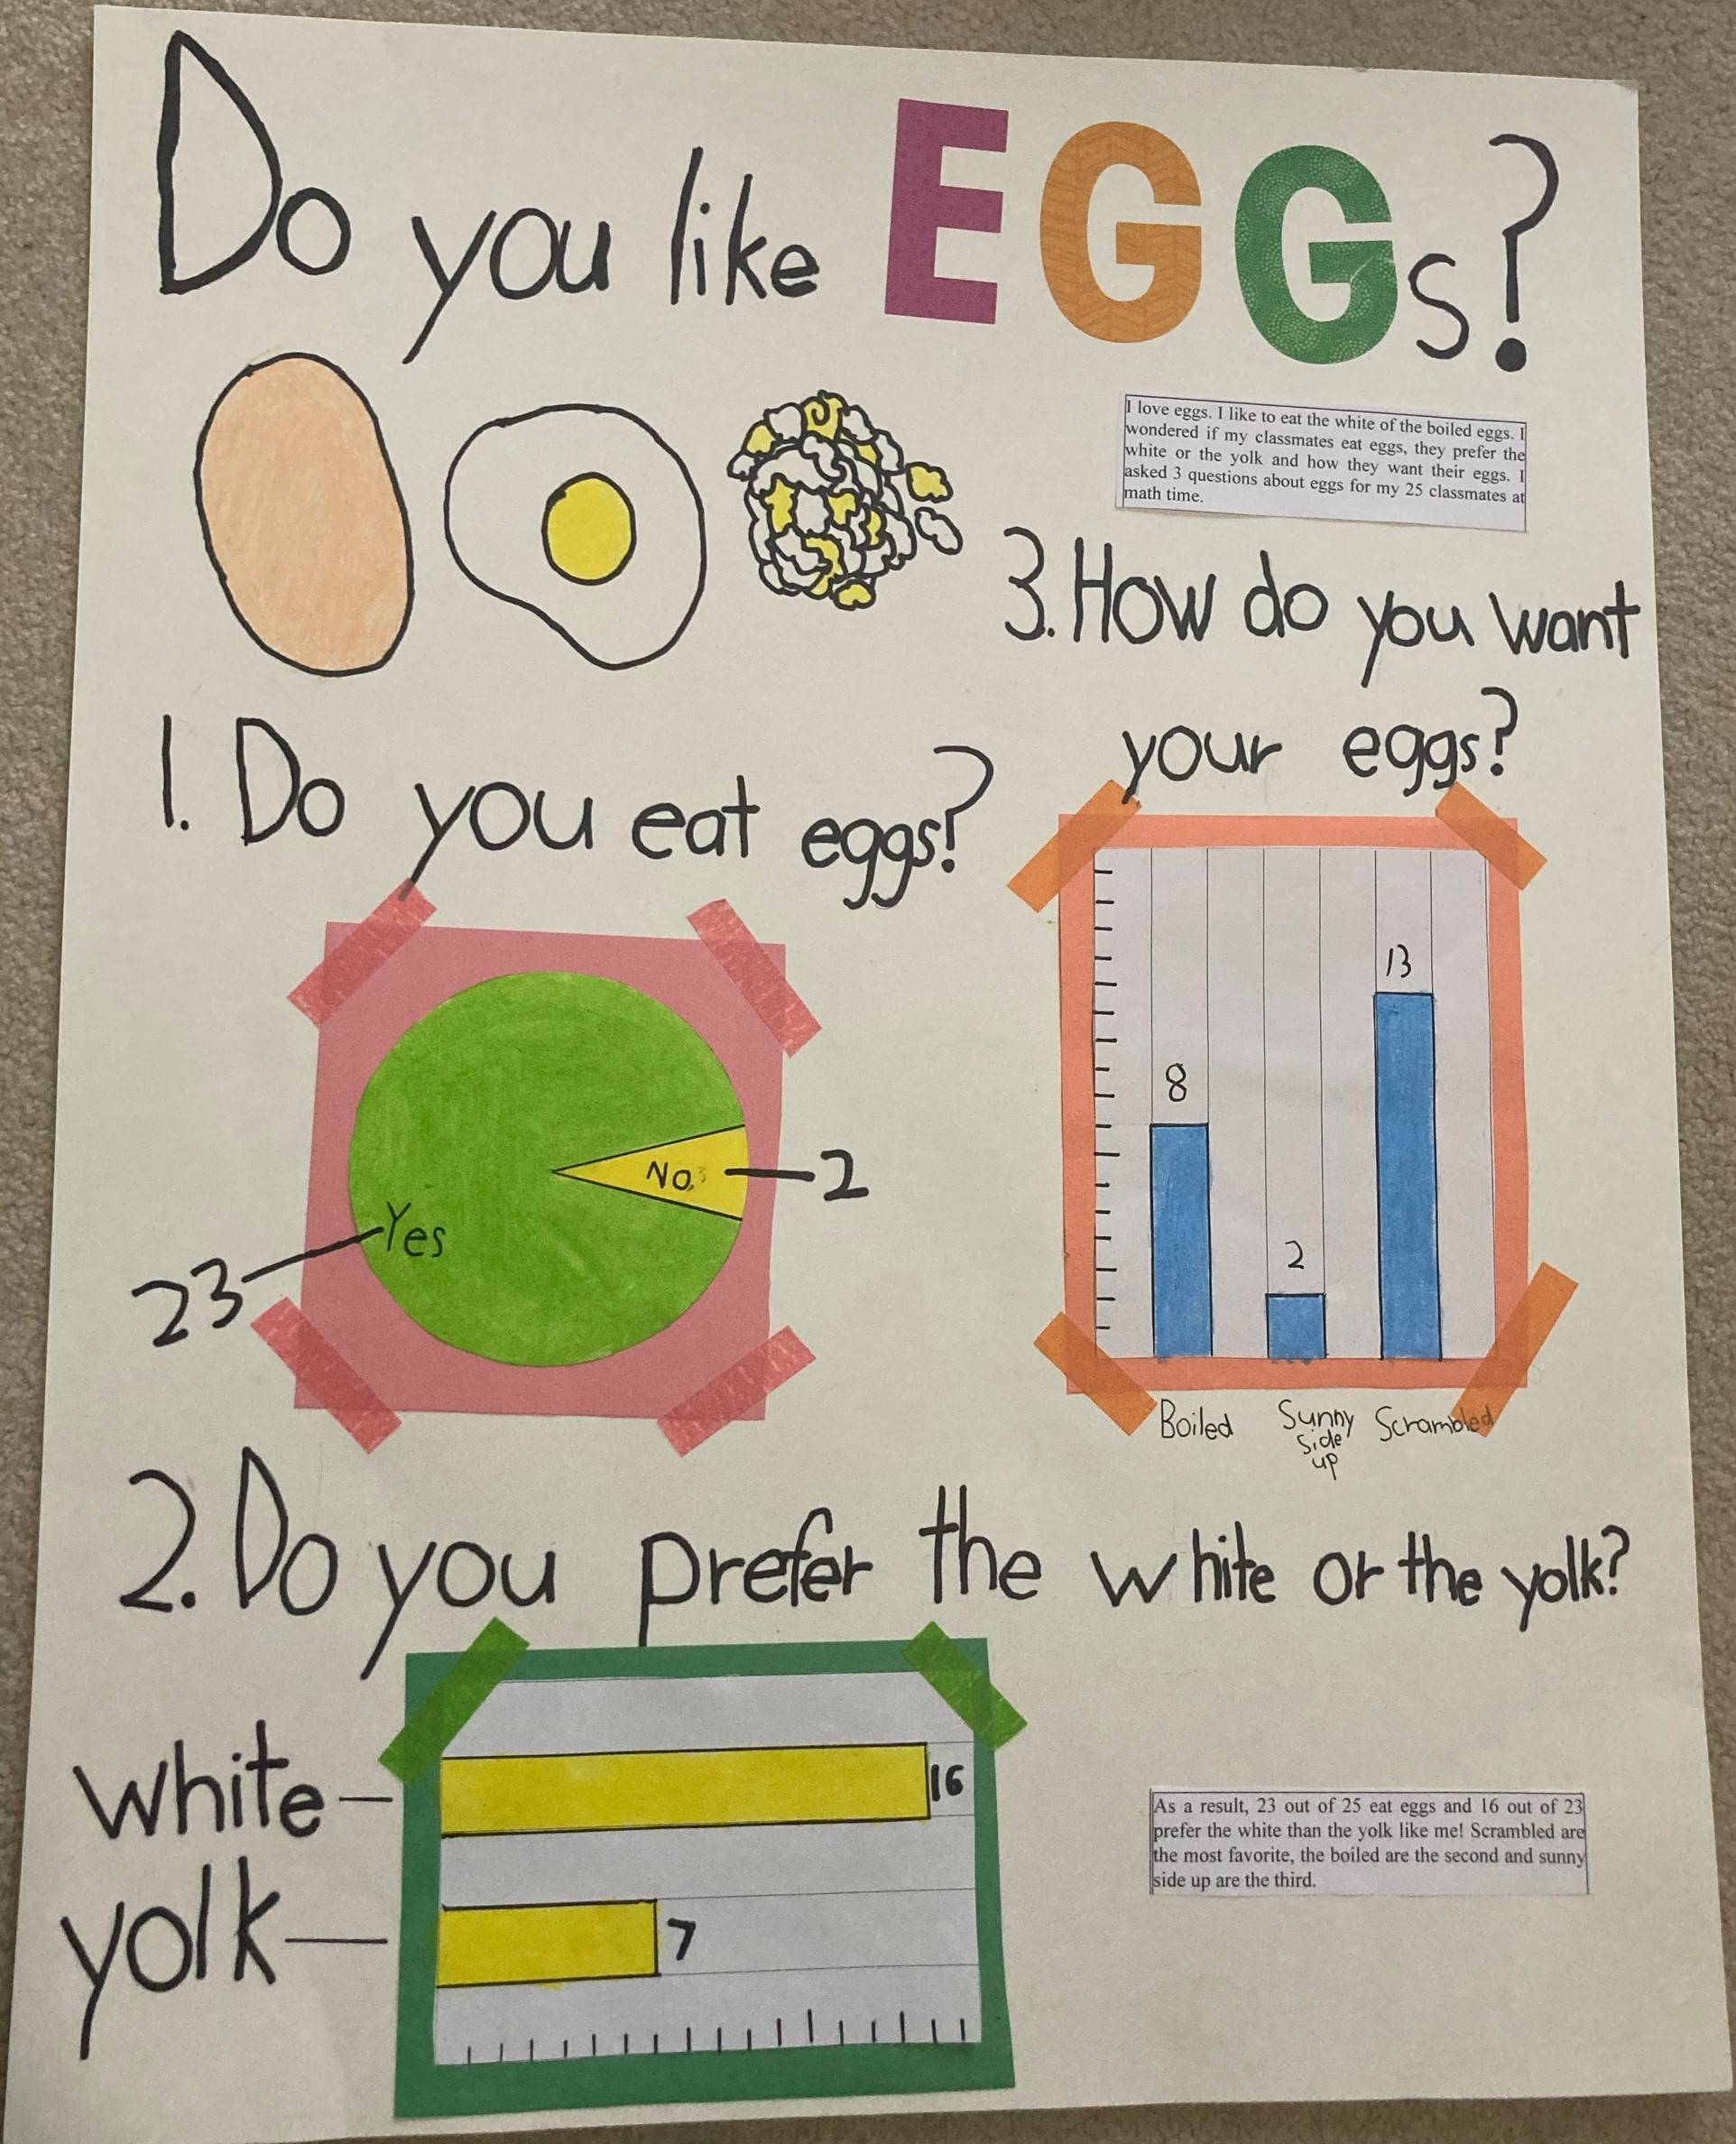 Do you like EGGs?
I love eggs. I like to eat the white of the boiled eggs. I
wondered if my classmates eat eggs, they prefer the
white or the yolk and how they want their eggs. I
asked 3 questions about eggs for my 25 classmates at
math time.
1. Do you eat eggs?
No
2
Yes
23
2. Do you prefer the white or the yolk?
white
16
yolk
7
3. How do you want
your eggs?
13
8
2
Boiled
Sunny
side
up
Scrambled
As a result, 23 out of 25 eat eggs and 16 out of 23
prefer the white than the yolk like me! Scrambled are
the most favorite, the boiled are the second and sunny
side up are the third.